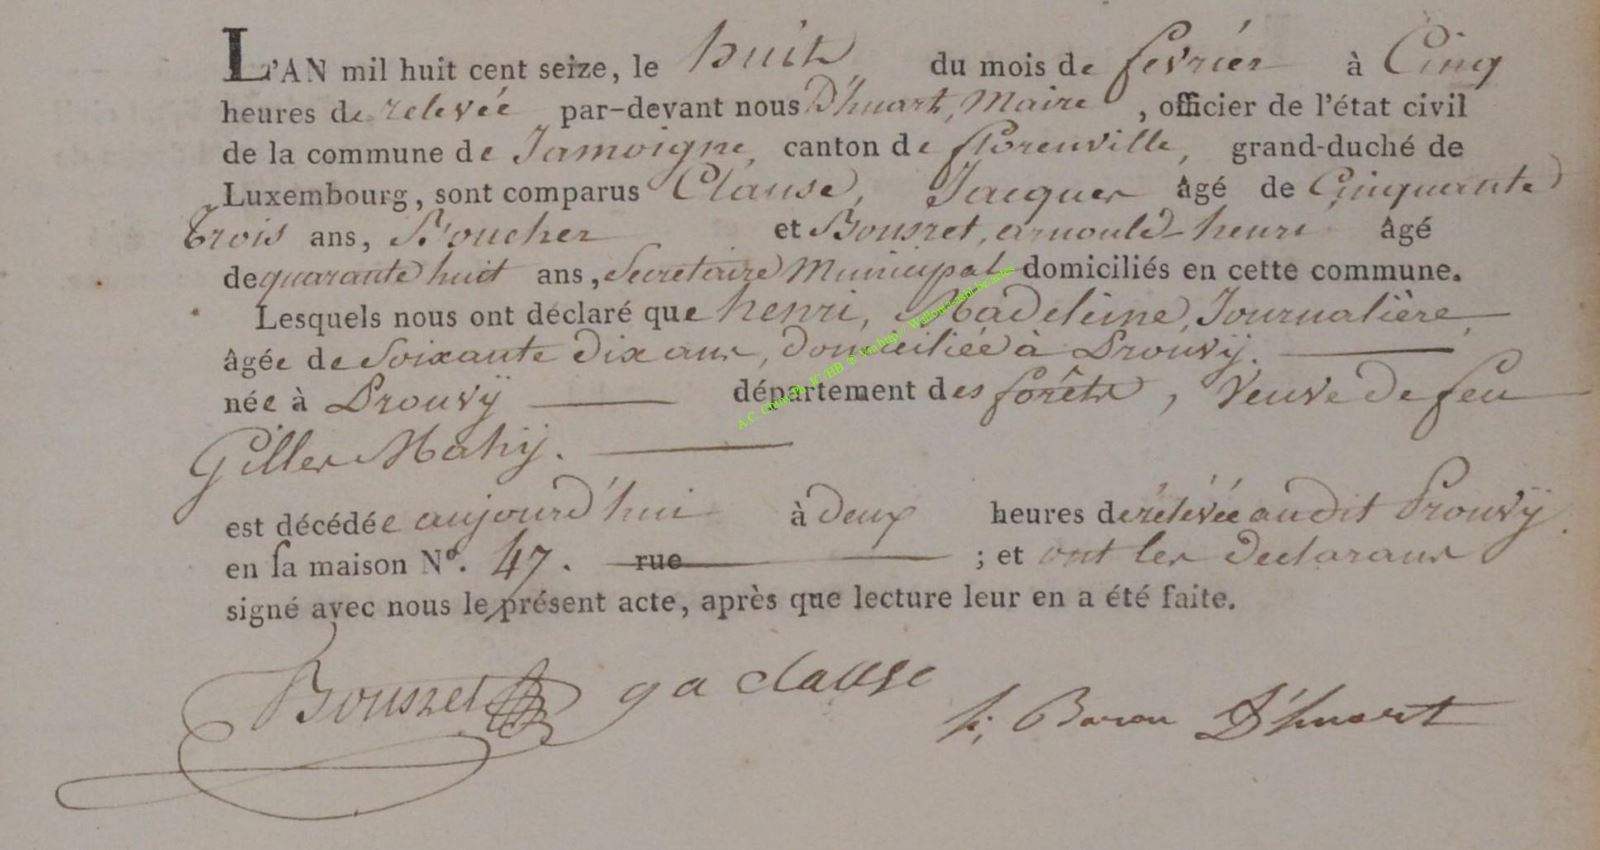 L'AN mil huit cent seize, le huit du mois de février à Cinq
heures de relevée par-devant nous D'huart, Maire, officier de l'état civil
de la commune de Jamoigne, canton de florenville, grand-duché de
Luxembourg, sont comparus Clause, Jacques âgé de Cinquante
Trois ans, Boucher et Bousret, arnould-henri âgé
de quarante huit ans, Secretaire Municipal domiciliés en cette commune.
Lesquels nous ont déclaré que henri, Madeleine, Journalière,
âgée de Soixante dix ans, domiciliée à Prouvÿ.
née à Prouvÿ département des forêts, Veuve de feu
Gilles Mahÿ.
est décédée aujourd'hui à deux heures de rélévée audit Prouvÿ.
en sa maison N°. 47. rue ; et ont les declarans
signé avec nous le présent acte, après que lecture leur en a été faite.
Bousret g a clause h; Baron D'huart